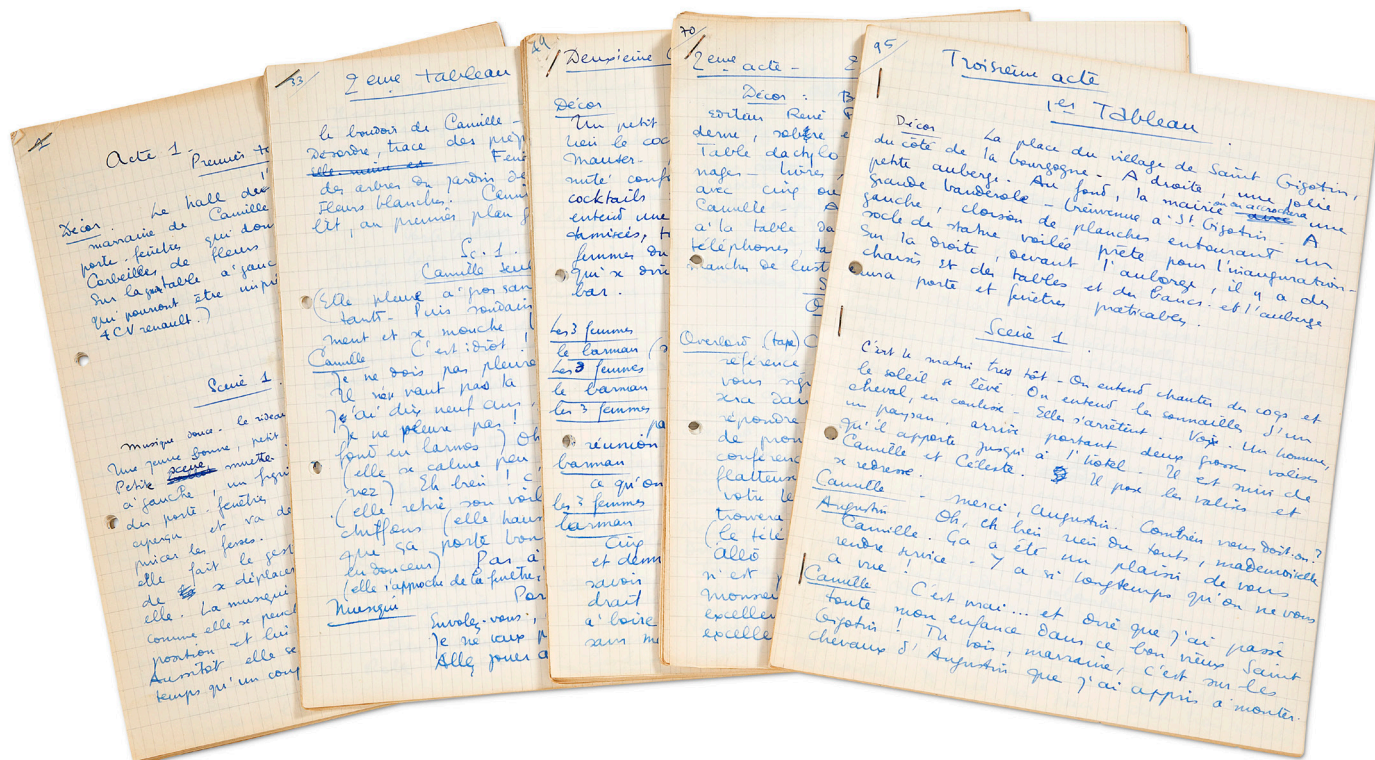 1
Acte 1.
Premier ta
Décor. Le hall de
marraine de Camille
porte-fenêtres qui don
Corbeilles de fleurs
Sur la table à gauc
qui pourront être inspi
4 CV renault.)
Scène 1.
Musique douce - le rideau
Une jeune bonne, petit
Petite scène muette
à gauche, un
des porte-fenêtres
aperçu et va de
pincer les fesses.
elle fait le gest
de se déplace
elle. La musiqu
comme elle se pench
position et lui
Aussitôt elle se
temps qu'un coup
33
2eme tableau
le boudoir de Camille -
Désordre, trace des prép
Fenê
des arbres du jardin de
Fleurs blanches. Camil
lit, au premier plan g
Sc. 1.
Camille seul
(Elle pleure à gros san
tante. Puis soudain
ment et se mouche)
Camille C'est idiot!
Je ne dois pas pleure
Il ne vaut pas la
J'ai dix neuf ans,
Je ne pleure pas!
fond en larmes) Oh
(elle se calme peu
nez) Eh bien! c
(elle retire son voile
chiffons (elle haus
que ça porte bon
en douceur) Pas à
(elle s'approche de la fenêtre,
Musique Par
Envolez-vous,
Je ne veux p
Allez jouer a
49
Deuxième
Décor
Un petit
lieu le coc
Mauser.
mité conf
cocktails
entend une
tamisées, t
femmes du
qui se dri
bar.
Les 3 femmes
le barman
Les 3 femmes
le barman
les 3 femmes
pa
réunion
barman
ce qu'on
les 3 femmes
barman
Cinq
et demi
savoir
drait
à boire
sans me
70
2eme acte - 2
Décor : B
éditeur René
derne, sobre e
Table dactylo
nages - livres,
avec cinq ou
Camille - A
à la table da
téléphones, ta
manches de lust
S
O
Overland (tape) C
référence
vous sig
sera dan
répondre
de pron
conféren
flatteuse
votre le
trouvera
(le télé
allô
n'est p
monsie
excelle
excelle
95
Troisième acte
1er Tableau.
Décor La place du village de Saint Gigotin,
du côté de la bourgogne - A droite, une jolie
petite auberge. Au fond, la mairie où on accrochera une
grande banderole - bienvenue à St Gigotin - A
gauche, cloison de planches entourant un
socle de statue voilée prête pour l'inauguration -
Sur la droite, devant l'auberge, il y a des
chaises et des tables et des bancs - et l'auberge
aura porte et fenêtres praticables.
Scène 1.
C'est le matin très tôt - On entend chanter des coqs et
le soleil se lève. On entend les sonnailles d'un
cheval, en coulisse - Elles s'arrêtent. Voix. Un homme,
un paysan, arrive portant deux grosses valises
qu'il apporte jusqu'à l'hôtel - Il est suivi de
Camille et Céleste. Il pose les valises et
se redresse.
Camille - merci, Augustin. Combien vous doit-on?
Augustin Oh, eh bien rien du tout, mademoiselle
Camille. Ça a été un plaisir de vous
rendre service - Y a si longtemps qu'on ne vous
a vue!
Camille C'est vrai... et dire que j'ai passé
toute mon enfance dans ce bon vieux Saint
Gigotin! Tu vois, marraine, c'est sur les
chevaux d'Augustin que j'ai appris à monter.